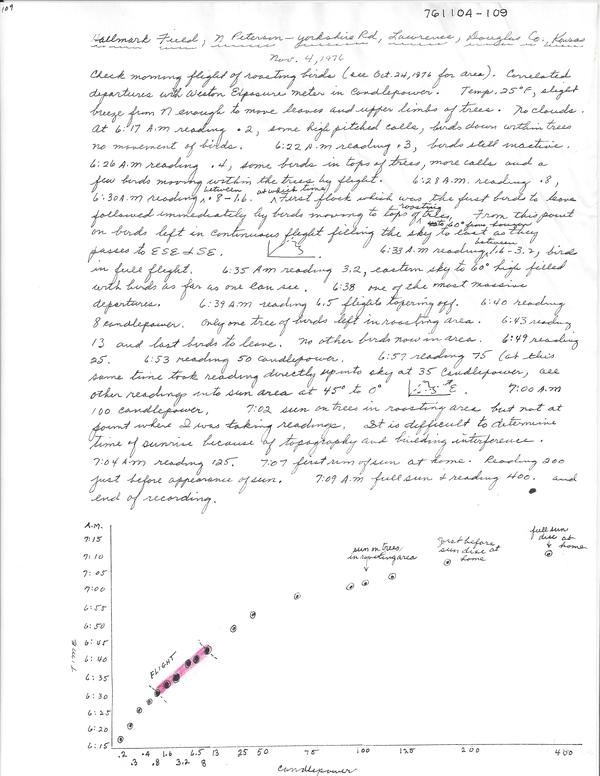 109
761104-109
Hallmark Field, N Peterson - Yorkshire Rd, Lawrence, Douglas Co., Kansas
Nov. 4, 1976
Check morning flight of roosting birds (see Oct. 24, 1976 for area). Correlated
departures with Weston Exposure meter in Candlepower. Temp. 25°F, slight
breeze from N enough to move leaves and upper limbs of trees. No clouds.
At 6:17 A.M reading .2, some high pitched calls, birds down within trees
no movement of birds. 6:22 A.M reading .3, birds still inactive.
6:26 A.M reading .4, some birds in tops of trees, more calls and a
few birds moving within the trees by flight. 6:28 A.M. reading .8,
6:30 A.M reading between .8-1.6. at which time First flock which was the first birds to leave
followed immediately by birds moving to tops of roosting trees. From this point
on birds left in continuous flight filling the sky to East as they
passes to ESE & SE. 6:33 A.M reading between 1.6-3.2, birds
in full flight. 6:35 A.M reading 3.2, eastern sky to 60° high filled
with birds as far as one can see. 6:38 one of the most massive
departures. 6:39 A.M reading 6.5 flights tapering off. 6:40 reading
8 candlepower. Only one tree of birds left in roosting area. 6:43 reading
13 and last birds to leave. No other birds now in area. 6:49 reading
25. 6:53 reading 50 candlepower. 6:57 reading 75 (at this
same time took reading directly up into sky at 35 candlepower, all
other readings into sun area at 45° to 0° E. 7:00 A.M
100 candlepower, 7:02 sun on trees in roosting area but not at
point where I was taking readings. It is difficult to determine
time of sunrise because of topography and building interference.
7:04 A.M reading 125. 7:07 first rim of sun at home. Reading 200
just before appearance of sun. 7:09 A.M full sun & reading 400. and
end of recording.
A.M.
7:15
7:10
7:05
7:00
6:55
6:50
6:45
6:40
6:35
6:30
6:25
6:20
6:15
TIME
FLIGHT
sun on trees
in roosting area
Just before
sun disc at
home
full sun
disc at
home
.2 .3 .4 .8 1.6 3.2 6.5 8 13 25 50 75 100 125 200 400
Candlepower